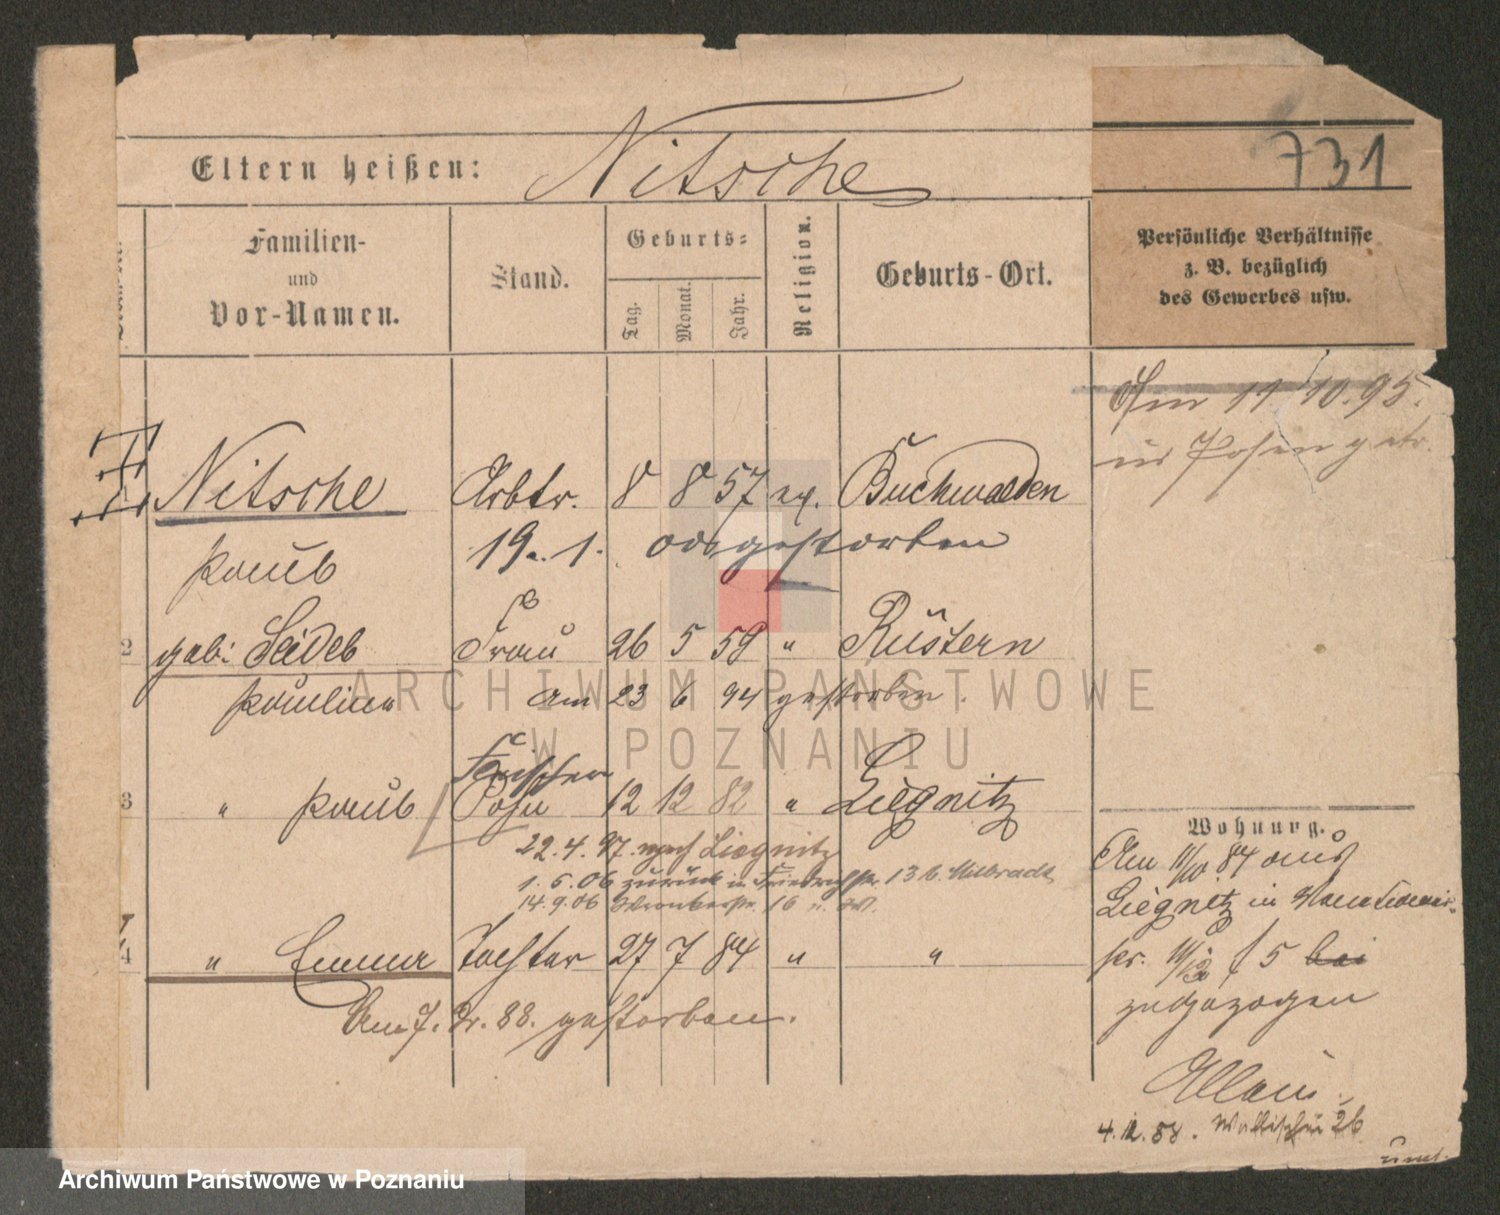 731
Eltern heißen: Nitsche
Familien-
und
Vor-Namen.
Stand.
Geburts-
Tag.
Monat.
Jahr.
Religion.
Geburts-Ort.
Persönliche Verhältnisse
z. B. bezüglich
des Gewerbes usw.
Am 11 10. 95.
in Posen getr.
Nitsche Arbtr. 8 8 57 ev. Buchwalden
Paul 19. 1. 00 gestorben
2 geb: Seidel Frau 26 5 59 " Rüstern
Pauline am 23 6 94 gestorben
3 " Paul Sohn 12 12 82 " Liegnitz
22. 4. 97. nach Liegnitz
1. 5. 06 zurück in 13 b.
14. 9. 06 16
4 " Emma Tochter 27 7 84 " "
Am 7. 88. gestorben.
Wohnung.
Am 11/10. 84 aus
Liegnitz in
5 bei
zugezogen
4. 12. 88. Wallischei 26
ARCHIWUM PAŃSTWOWE
W POZNANIU
Archiwum Państwowe w Poznaniu